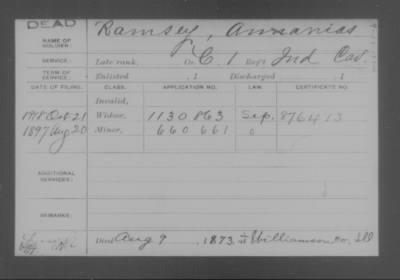 DEAD
NAME OF SOLDIER: Ramsey, Annanias
SERVICE: Late rank, Co. C, 1 Reg't Ind Cav
TERM OF SERVICE: Enlisted , 1 Discharged , 1
DATE OF FILING. CLASS. APPLICATION NO. LAW. CERTIFICATE NO.
Invalid,
1918 Oct 21 Widow, 1130 863 Sep. 876413
1897 Aug 20 Minor, 660 661 0
ADDITIONAL SERVICES:
REMARKS:
Died Aug 9, 1873, at Williamson Co. Ill